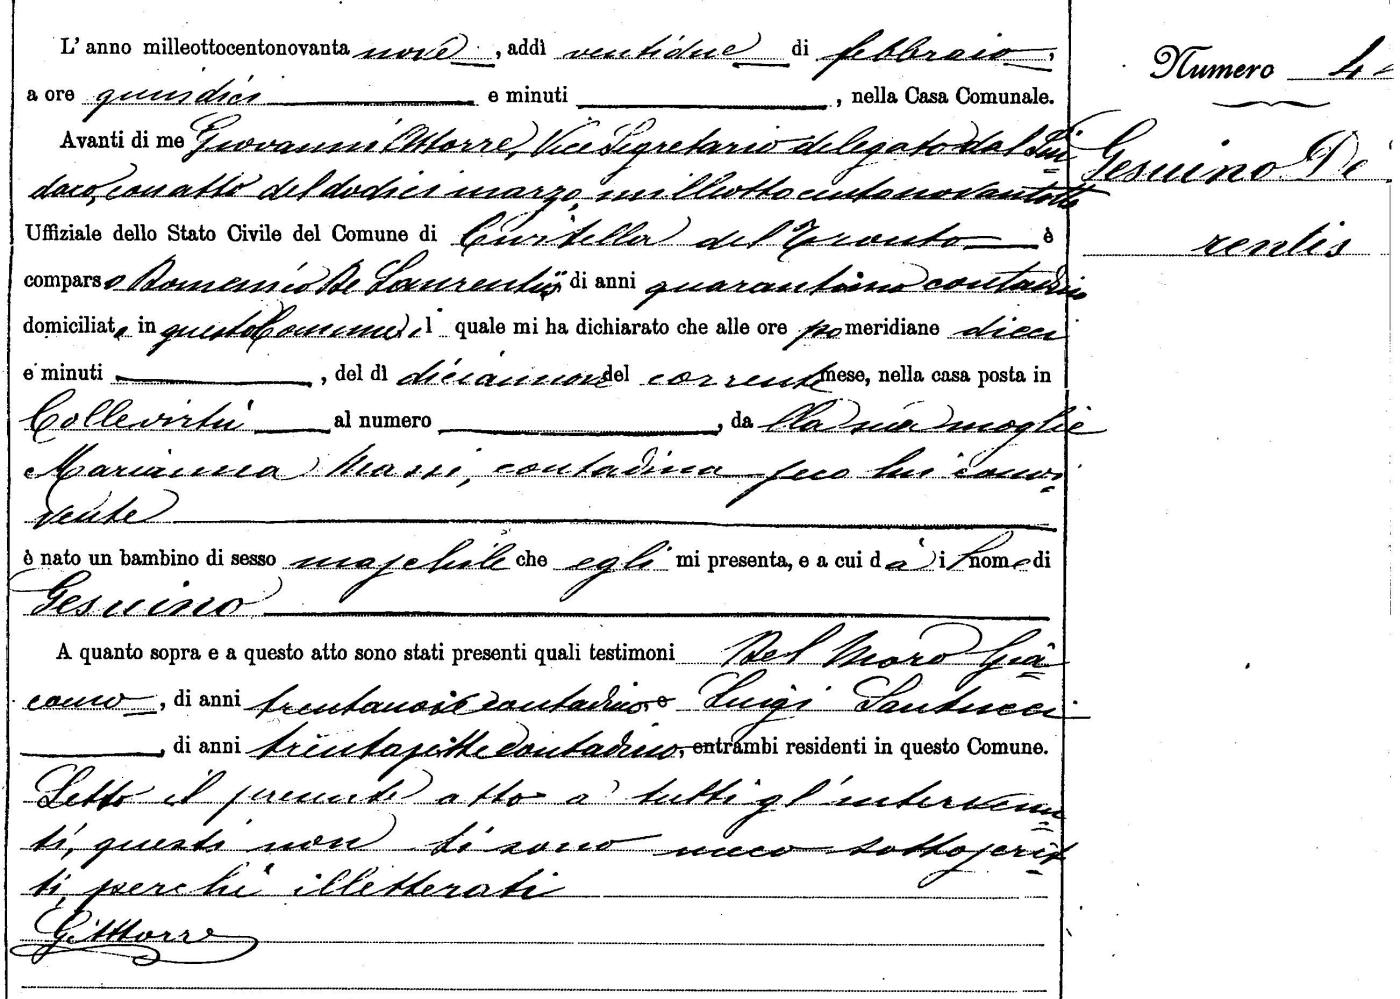 L' anno milleottocentonovanta nove, addì ventidue di febbraio,
a ore quindici e minuti , nella Casa Comunale.
Avanti di me Giovanni Ettorre, Vice Segretario delegato dal Sin
daco, con atto del dodici marzo milleottocentonovantotto
Uffiziale dello Stato Civile del Comune di Civitella del Tronto è
comparso Domenico De Laurentiis di anni contadino
domiciliato in questo Comune il quale mi ha dichiarato che alle ore pomeridiane dieci
e minuti , del dì diciannove del corrente mese, nella casa posta in
Collevirtù al numero , da lla sua moglie
Marianna Massi, contadina seco lui convi
vente
è nato un bambino di sesso maschile che egli mi presenta, e a cui dà il nome di
Gesuino
A quanto sopra e a questo atto sono stati presenti quali testimoni Del Moro Gia
como, di anni trentanove contadino, e Luigi Santucci
, di anni trentasette contadino, entrambi residenti in questo Comune.
Letto il presente atto a tutti gl'intervenu
ti, questi non si sono meco sottoscrit
ti, perché illetterati
GEttorre
Numero 4
Gesuino De
rentis